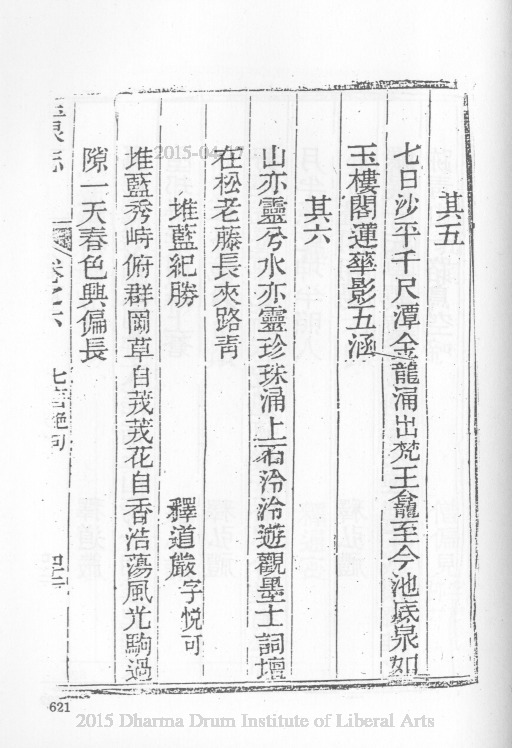 其五
七日沙平千尺潭金龍涌出梵王龕至今池底泉如
玉樓閣蓮華影五涵
其六
山亦靈兮水亦靈珍珠涌上石泠泠遊觀墨士詞壇
在松老藤長夾路青
堆藍紀勝 釋道嚴字悅可
堆藍秀峙俯群岡草自茂茂花自香浩蕩風光駒過
隙一天春色興偏長
玉泉志 卷之六 七言絶句
2015-04-17
621
2015 Dharma Drum Institute of Liberal Arts